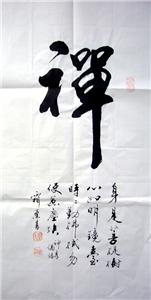 禪
身是菩提樹
心如明鏡臺
時々勤拂拭勿
使惹塵埃